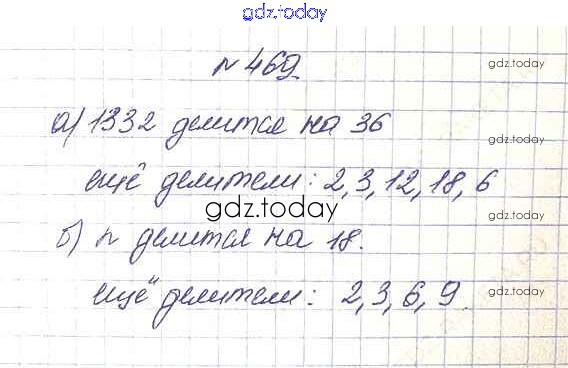 gdz.today
№ 469
gdz.today
а) 1332 делится на 36
gdz.today
ещё делители: 2, 3, 12, 18, 6
gdz.today
gdz.today
б) n делится на 18.
ещё делители: 2, 3, 6, 9.
gdz.today